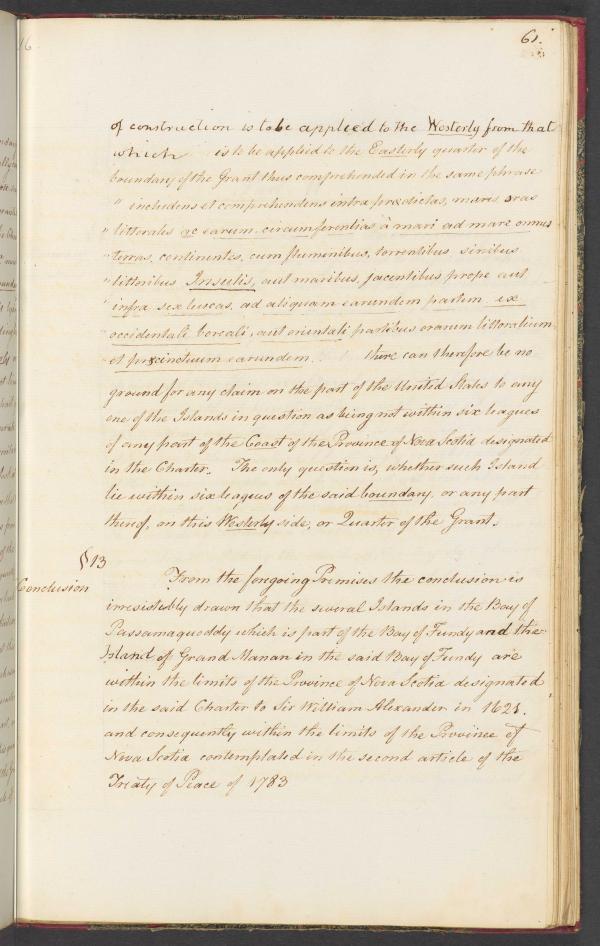 61.
of construction is to be applied to the Westerly from that
which is to be applied to the Easterly quarter of the
boundary of the Grant thus comprehended in the same phrase
" includens et comprehendens intra prædictas, mares oras
" littorales ac earum circumferentias à mari ad mare omnes
" terras, continentes, cum fluminibus, torrentibus sinibus
" littoribus Insulis, aut maribus, jacentibus prope aut
" infra sex leucas, ad aliquam earundem partem, ex
occidentali boreali, aut orientali partibus orarum littoralium
et præcinctuum earundem. there can therefore be no
ground for any claim on the part of the United States to any
one of the Islands in question as being not within six leagues
of any part of the Coast of the Province of Nova Scotia designated
in the Charter. The only question is, whether such Island
lie within six leagues of the said boundary, or any part
thereof, on this Westerly side, or Quarter of the Grant.
§13
Conclusion
From the foregoing Premises the conclusion is
irresistibly drawn that the several Islands in the Bay of
Passamaquoddy which is part of the Bay of Fundy and the
Island of Grand Manan in the said Bay of Fundy are
within the limits of the Province of Nova Scotia designated
in the said Charter to Sir William Alexander in 1621.
and consequently within the limits of the Province of
Nova Scotia contemplated in the second article of the
Treaty of Peace of 1783